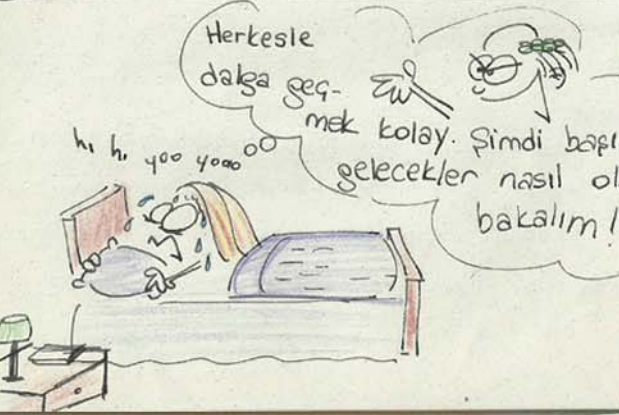 Herkesle
dalga geç-
mek kolay. Şimdi başı
gelecekler nasıl ol
bakalım!
hı hı yoo yooo